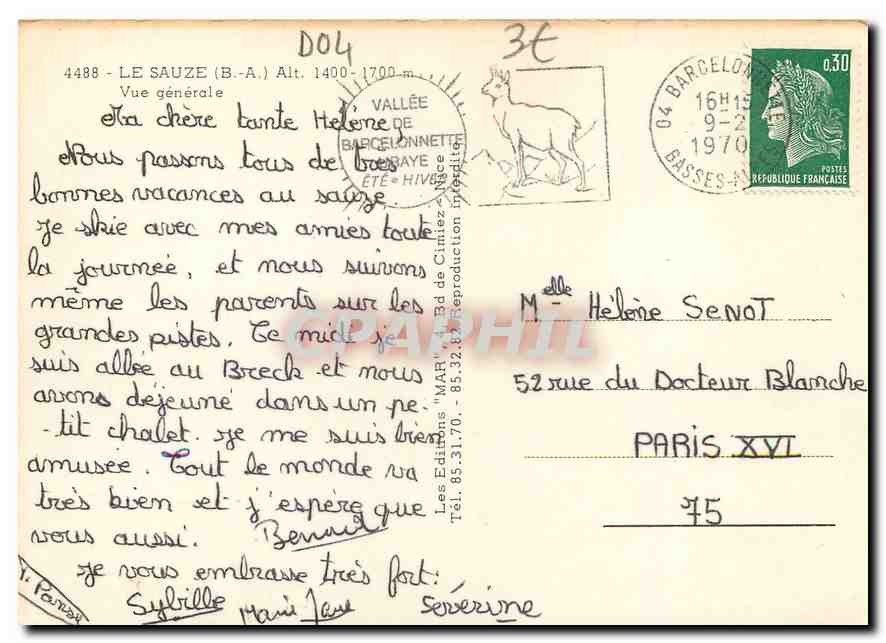 D04
3€
4488 - LE SAUZE (B.-A.) Alt. 1400-1700 m
Vue générale
VALLÉE
DE
BARCELONNETTE
UBAYE
ÉTÉ - HIVER
04 BARCELONNETTE
16H15
9-2
1970
BASSES-A
0,30
POSTES
REPUBLIQUE FRANÇAISE
Ma chère tante Hélène,
Nous passons tous de très
bonnes vacances au sauze.
Je skie avec mes amies toute
la journée, et nous suivons
même les parents sur les
grandes pistes. Ce midi je
suis allée au Breck et nous
avons déjeuné dans un pe-
-tit chalet. Je me suis bien
amusée. Tout le monde va
très bien et j'espère que
vous aussi. Benoit
Je vous embrasse très fort:
Sybille Marie Séverine
Les Editions "MAR", 4, Bd de Cimiez - Nice
Tél. 85.31.70. - 85.32.82 Reproduction interdite
Melle Hélène SENOT
52 rue du Docteur Blanche
PARIS XVI
75
CPAPHIL